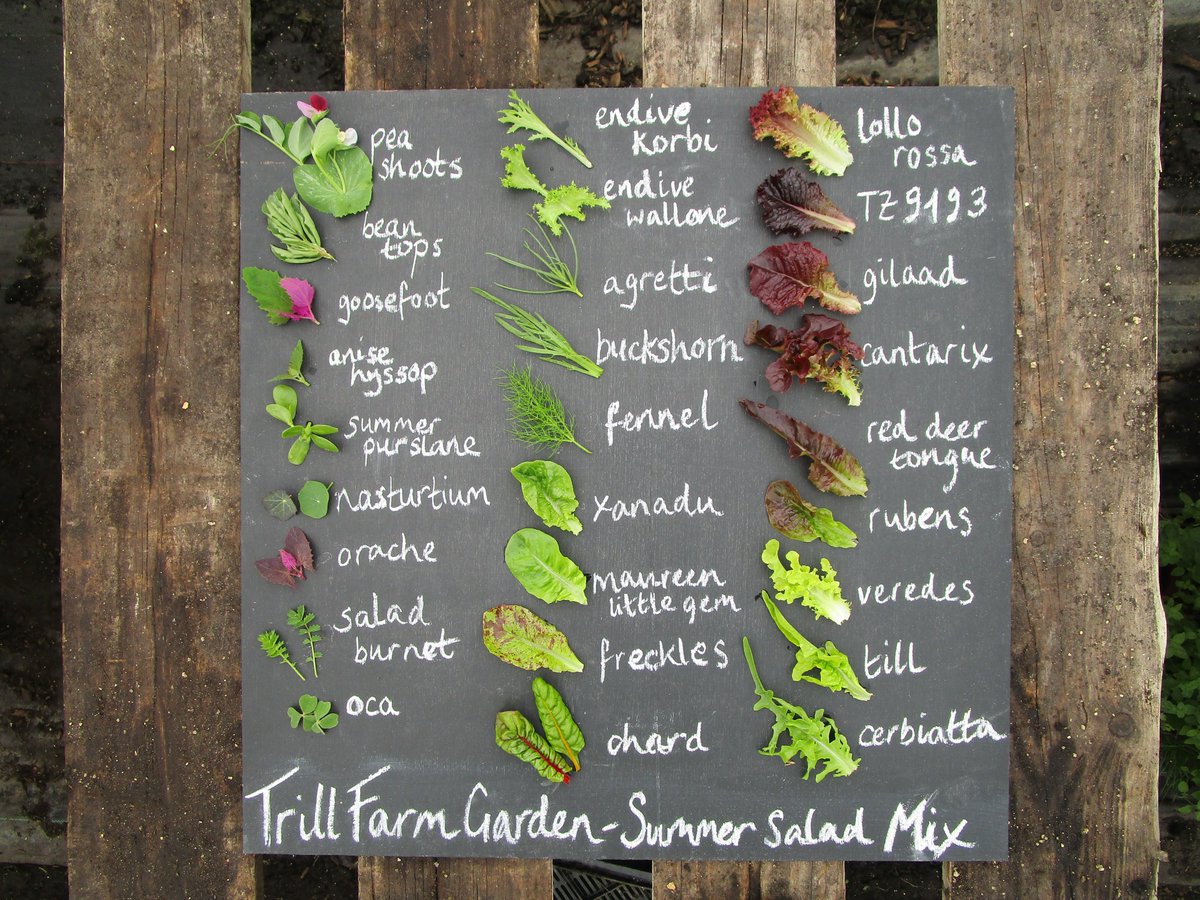 pea
shoots
bean
tops
goosefoot
anise
hyssop
summer
purslane
nasturtium
orache
salad
burnet
oca
endive
korbi
endive
wallone
agretti
buckshorn
fennel
xanadu
maureen
little gem
freckles
chard
lollo
rossa
TZ9193
gilaad
cantarix
red deer
tongue
rubens
veredes
till
cerbiatta
Trill Farm Garden - Summer Salad Mix